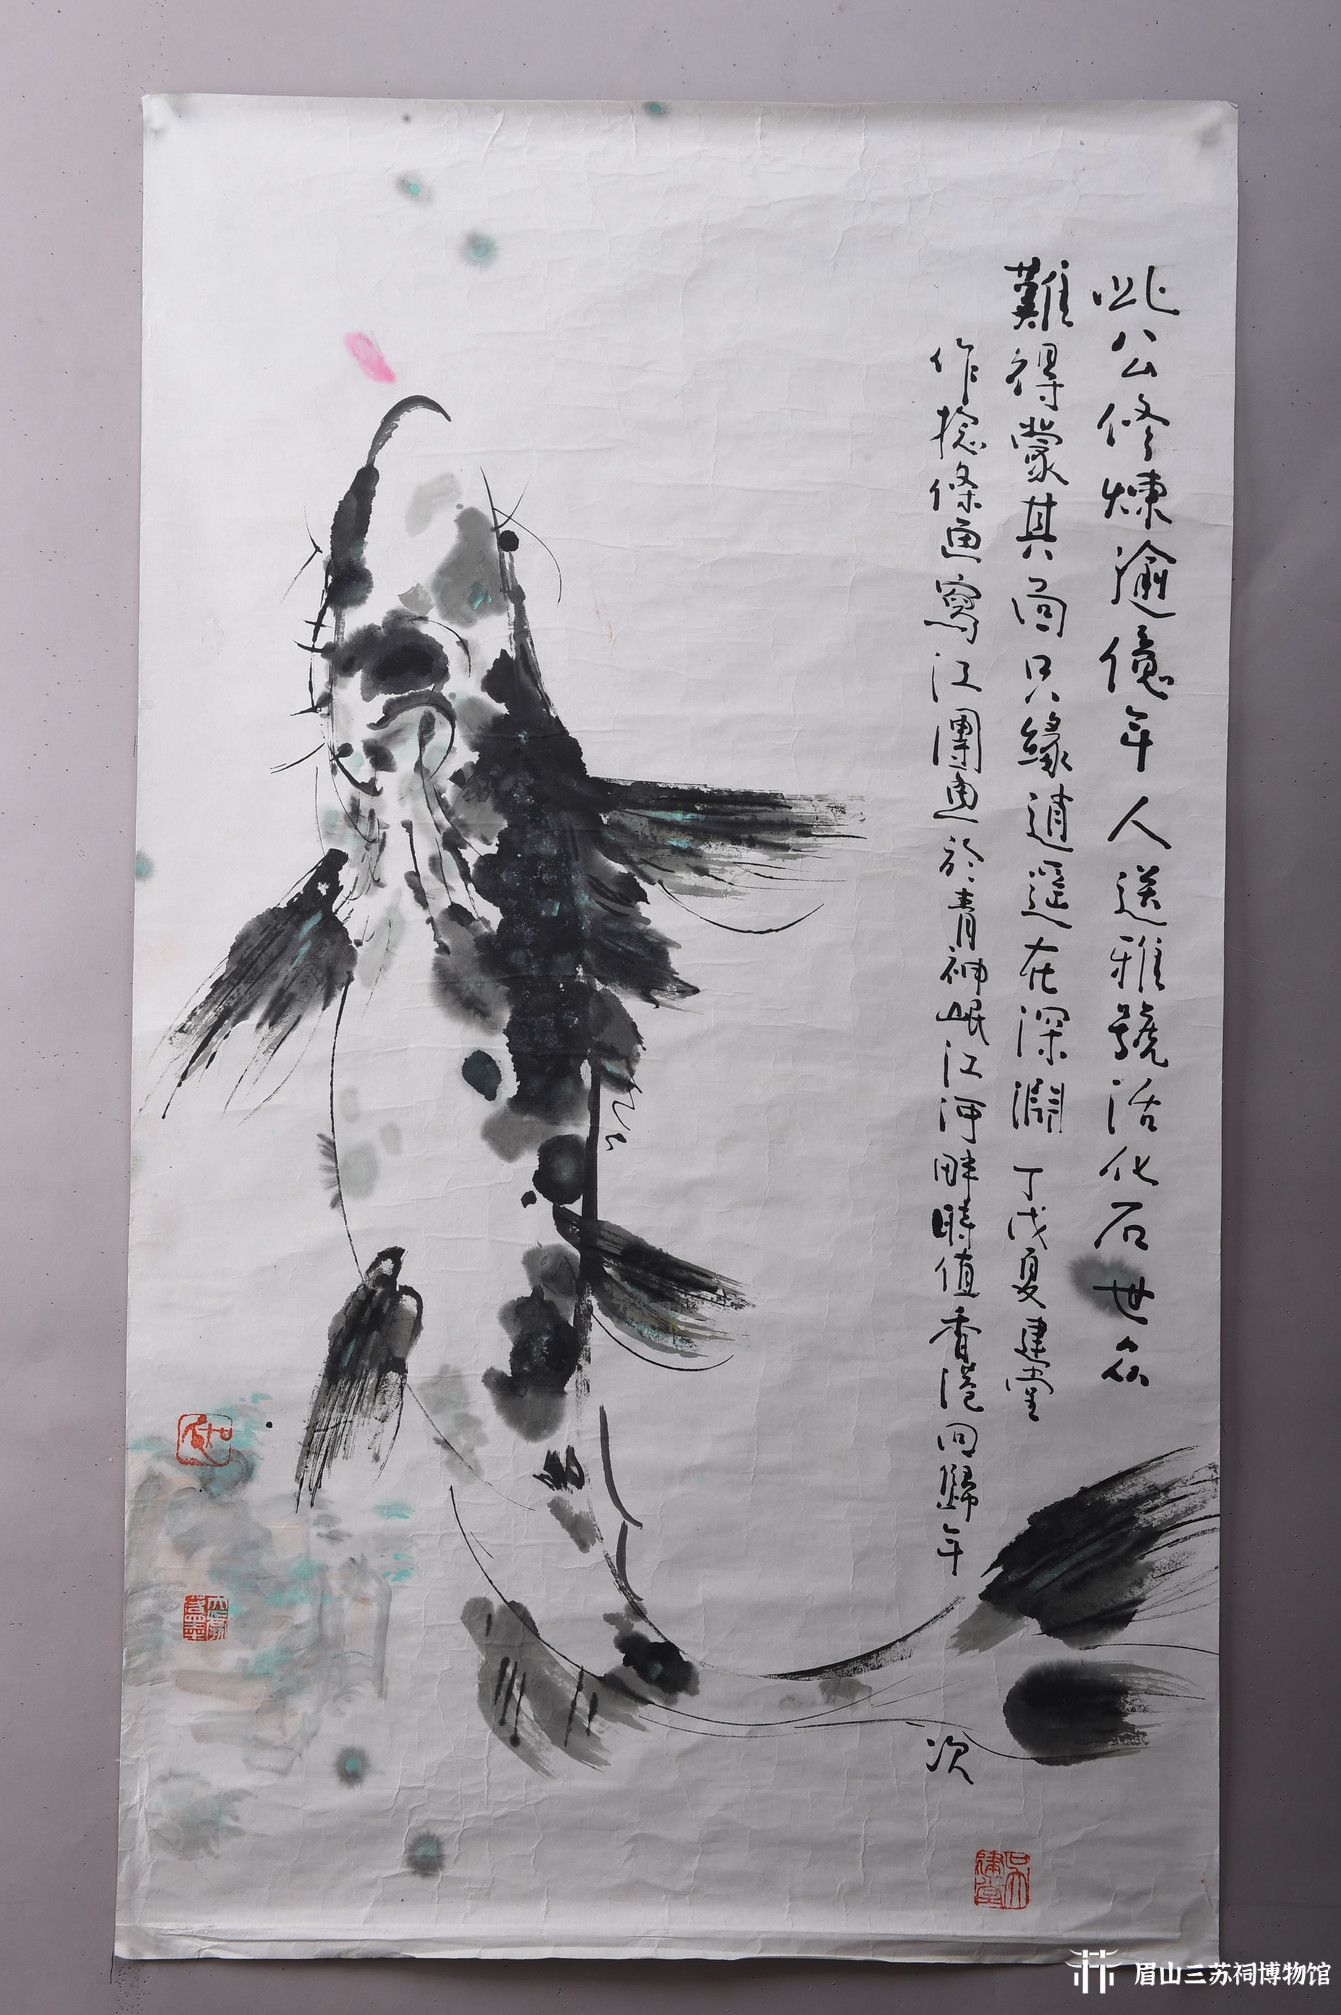 此公修煉逾億年人送雅號活化石世众
難得蒙其面只緣逍遥在深淵 丁戊夏建堂
作捻條魚寫江團魚於青神岷江河畔時值香港回歸年
次
眉山三苏祠博物馆